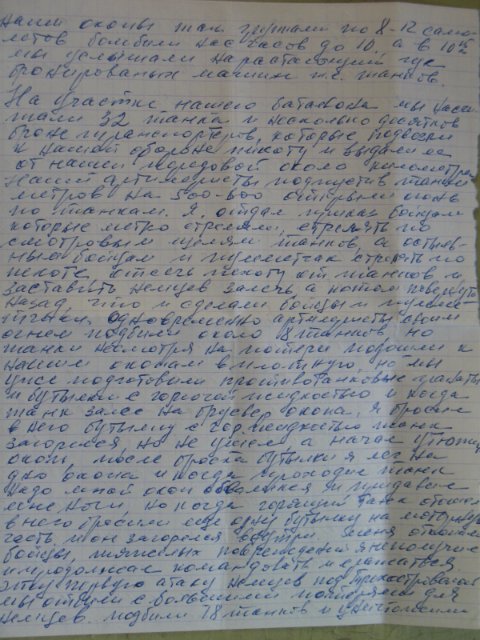 нашей окопы там группами по 8-12 само-
летов бомбили нас часов до 10, а в 10 час
мы услышали нарастающий гул
бронированых машин т.е. танков.
На участке нашего батальона мы насчи-
тали 32 танка и несколько десятков
бронетранспортеров, которые подвезли
к нашей обороне пехоту и высадили ее
от нашей передовой около километра
Наши артиллеристы подпустив танки
метров на 500-600 открыли огонь
по танкам. Я отдал приказ бойцам
которые метко стреляли, стрелять по
смотровым щелям танков, а осталь-
ным бойцам и пулеметчикам стрелять по
пехоте, отсечь пехоту от танков и
заставить немцев залечь, а потом повернуть
назад, что и сделали бойцы и пулеме-
тчики, одновременно артиллеристы своим
огнем подбили около 18 танков, но
танки несмотря на потери подошли к
нашим окопам вплотную, но мы
уже подготовили противотанковые гранаты
и бутылки с горючей жидкостью и когда
танк залез на бруствер окопа, я бросил
в него бутылку с гор. жидкостью танк
загорелся но не ушел а начал утюжить
окоп, после броска бутылки я лег на
дно окопа и когда проходил танк
надо мной окоп обвалился и придавило
мне ноги, но когда горящий танк отошел
в него бросили еще одну бутылку на моторную
часть, и он загорелся внутри. Меня откопали
бойцы, тяжелых повреждений я не получил
и продолжал командовать и сражаться
эту первую атаку немцев под
мы отбили с большими потерями для
немцев. подбили 18 танков и уничтожили